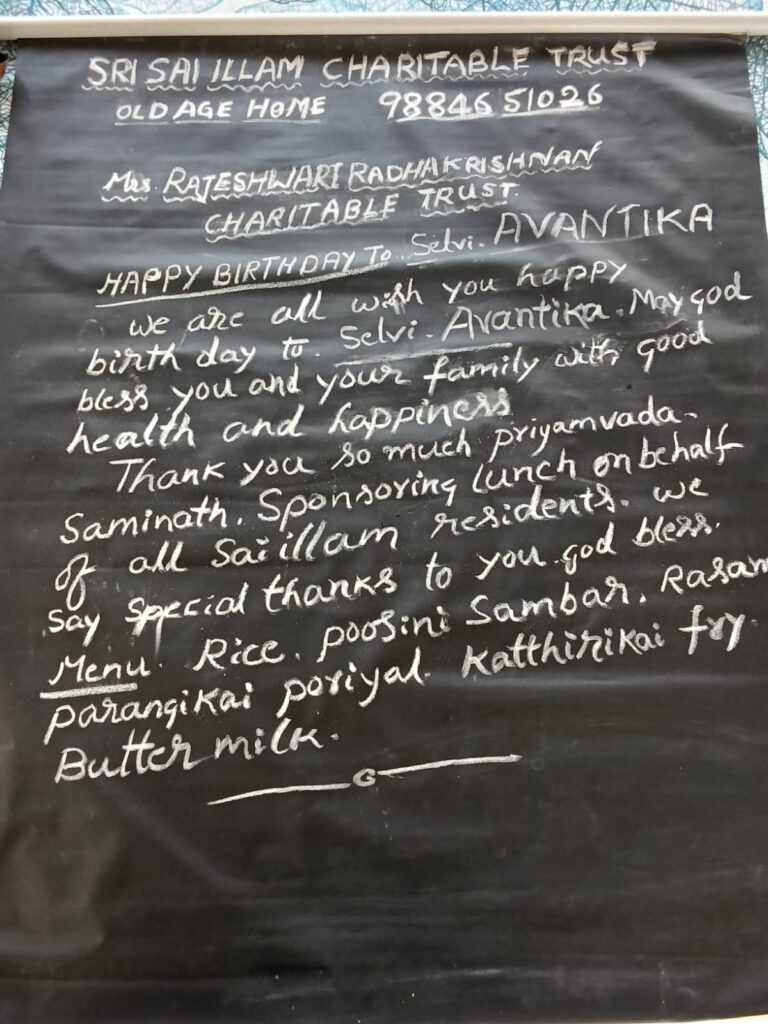 SRI SAI ILLAM CHARITABLE TRUST
OLD AGE HOME 98846 51026
Mrs. RAJESHWARI RADHAKRISHNAN
CHARITABLE TRUST.
HAPPY BIRTHDAY To. Selvi. AVANTIKA
we are all wish you happy
birth day to. Selvi. Avantika. May god
bless you and your family with good
health and happiness
Thank you so much priyamvada.
Saminath. Sponsoring lunch on behalf
of all Sai illam residents. we
say special thanks to you god bless.
Menu. Rice. poosini Sambar. Rasam
parangikai poriyal. Katthirikai fry.
Butter milk.